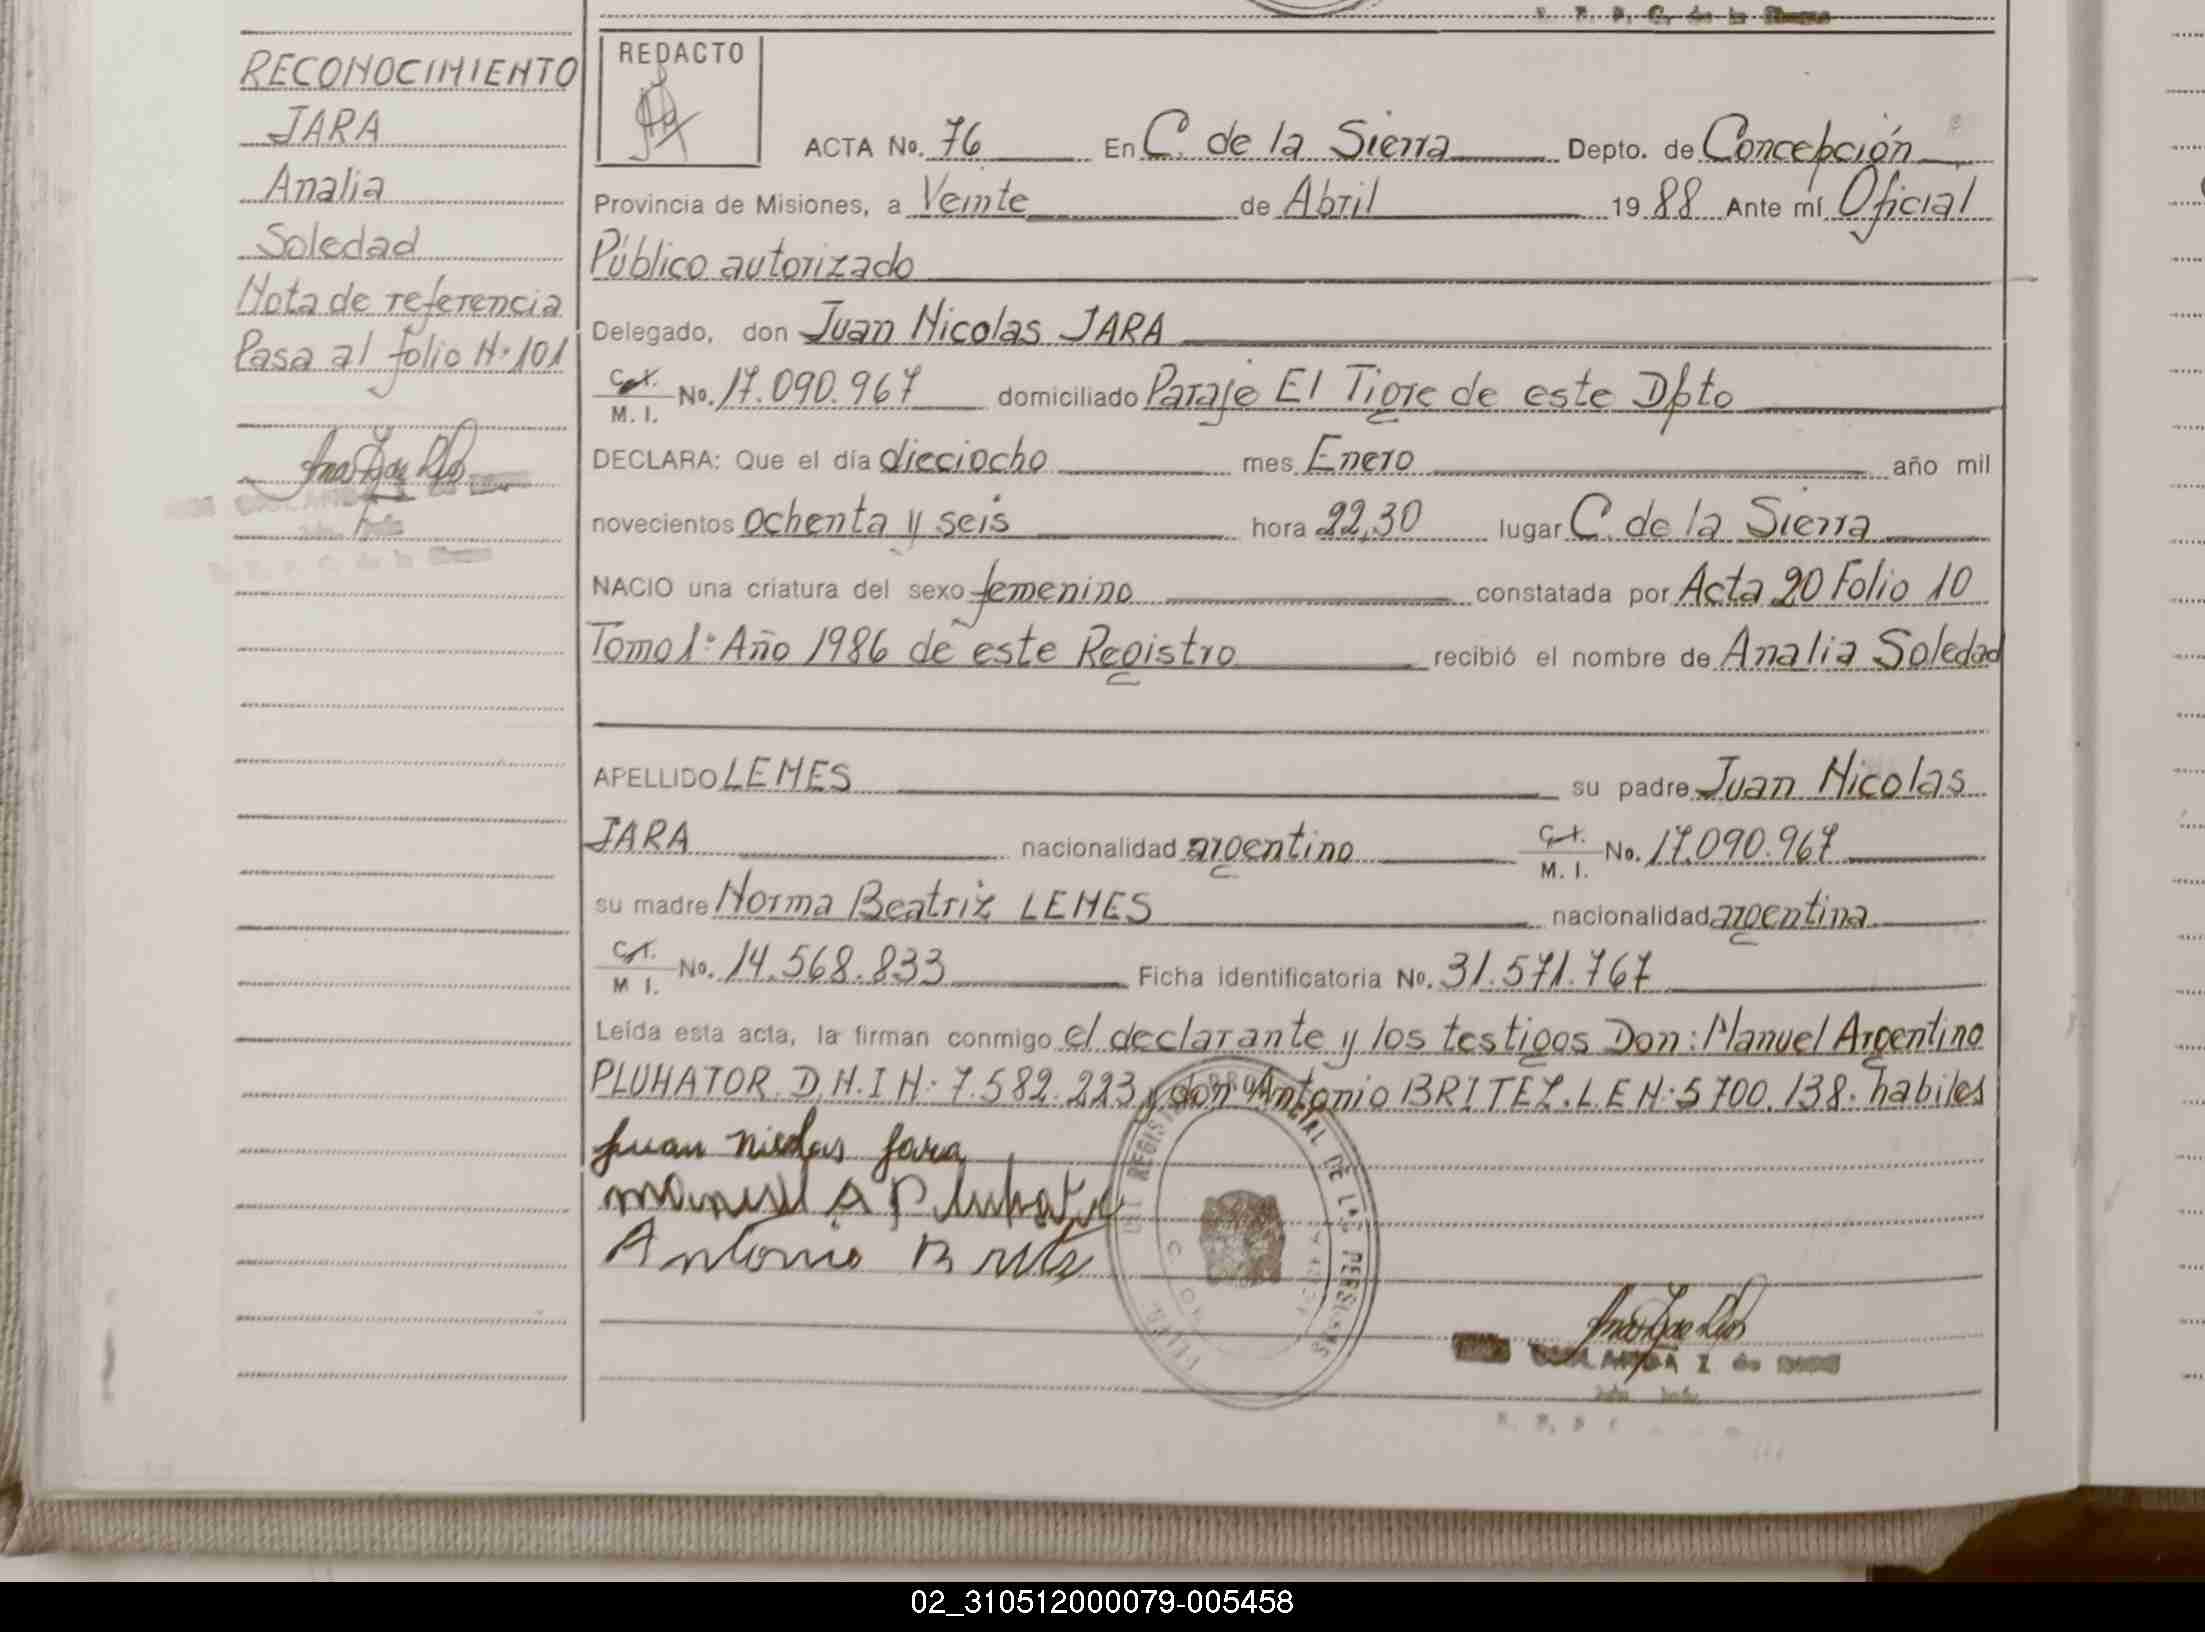 RECONOCIMIENTO
JARA
Analia
Soledad
Nota de referencia
Pasa al folio N° 101
REDACTO
ACTA No. 76 En C. de la Sierra Depto. de Concepción
Provincia de Misiones, a Veinte de Abril 19 88 Ante mí Oficial
Público autorizado
Delegado, don Juan Nicolas JARA
C. I. M. I. No. 17.090.967 domiciliado Paraje El Tigre de este Dpto
DECLARA: Que el día dieciocho mes Enero año mil
novecientos ochenta y seis hora 22,30 lugar C. de la Sierra
NACIO una criatura del sexo femenino constatada por Acta 20 Folio 10
Tomo 1° Año 1986 de este Registro recibió el nombre de Analia Soledad
APELLIDO LEMES su padre Juan Nicolas
JARA nacionalidad argentino C. I. M. I. No. 17.090.967
su madre Norma Beatriz LEMES nacionalidad argentina
C. I. M I. No. 14.568.833 Ficha identificatoria No. 31.571.767
Leída esta acta, la firman conmigo el declarante y los testigos Don: Manuel Argentino
PLUHATOR D.N.I N: 7.582.223 y don Antonio BRITEZ. L.E N: 5700.138. habiles
Juan nicolas Jara
manuel A Pluhator
Antonio Britez
REGISTRO PROVINCIAL DE LAS PERSONAS
02_310512000079-005458